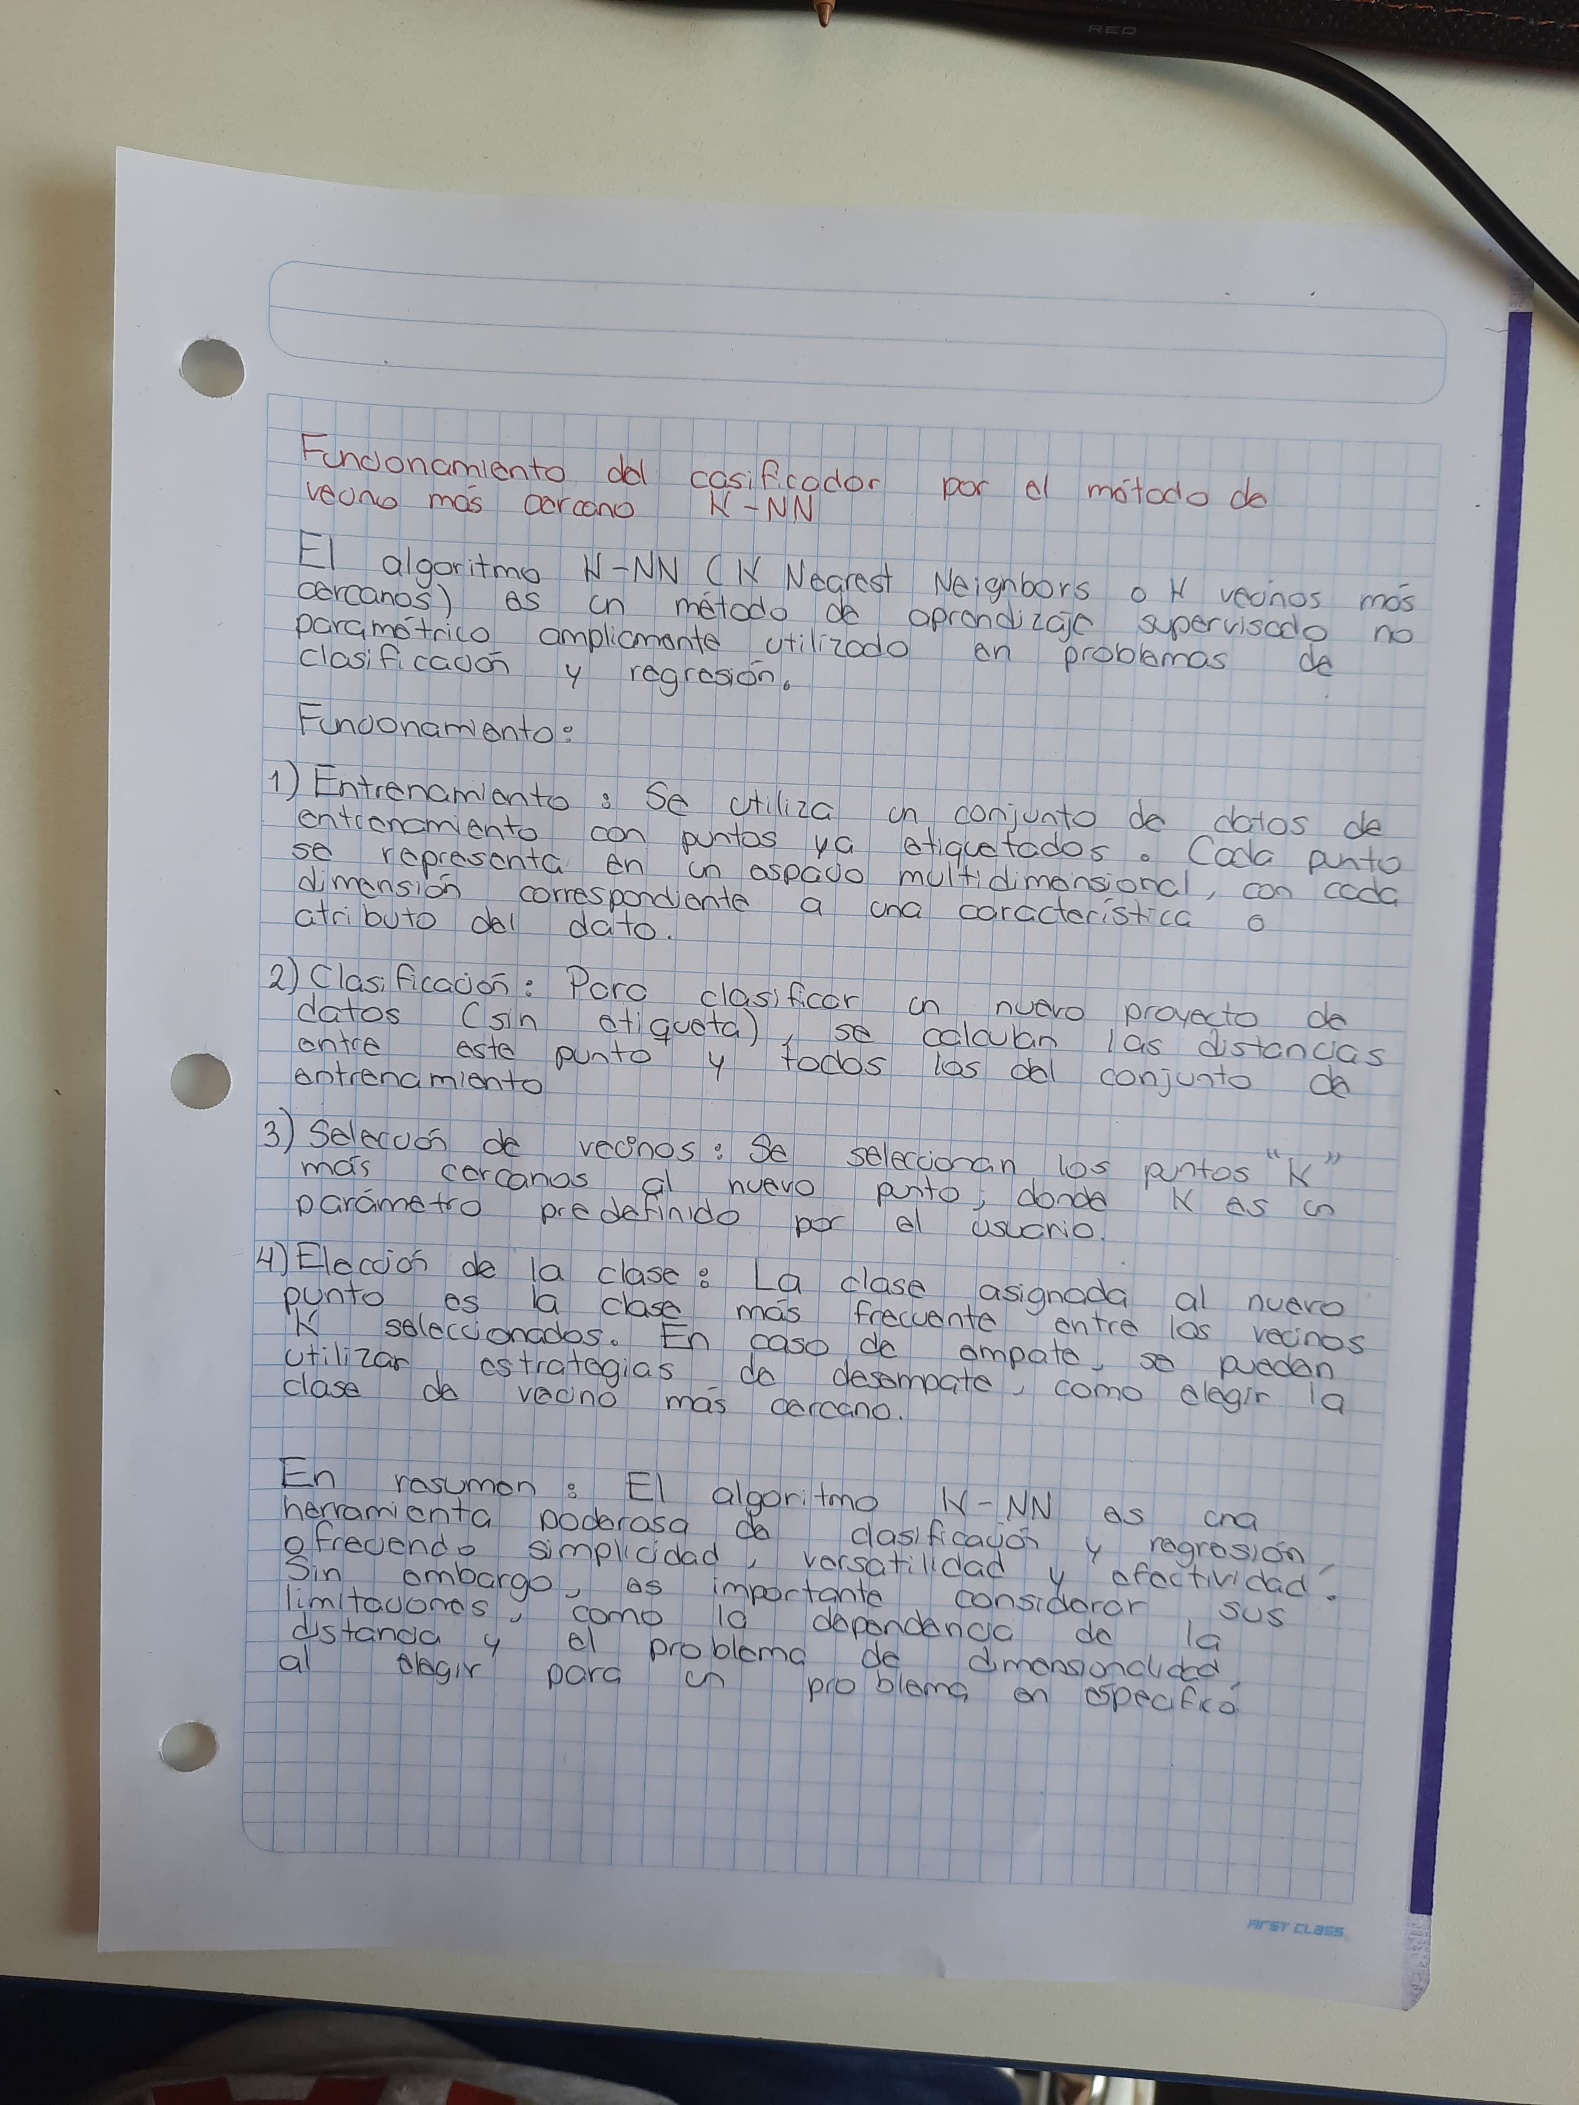 RED
Funcionamiento del casificador por el método de
vecino más cercano K-NN
El algoritmo K-NN (K Nearest Neighbors o K vecinos más
cercanos) es un método de aprendizaje supervisado no
paramétrico ampliamente utilizado en problemas de
clasificación y regresión.
Funcionamiento:
1) Entrenamiento: Se utiliza un conjunto de datos de
entrenamiento con puntos ya etiquetados. Cada punto
se representa en un espacio multidimensional, con cada
dimensión correspondiente a una característica o
atributo del dato.
2) Clasificación: Para clasificar un nuevo proyecto de
datos (sin etiqueta), se calculan las distancias
entre este punto y todos los del conjunto de
entrenamiento
3) Selección de vecinos: Se seleccionan los puntos "K"
más cercanos al nuevo punto, donde K es un
parámetro predefinido por el usuario.
4) Elección de la clase: La clase asignada al nuevo
punto es la clase más frecuente entre los vecinos
K seleccionados. En caso de empate, se pueden
utilizar estrategias de desempate, como elegir la
clase de vecino más cercano.
En resumen: El algoritmo K-NN es una
herramienta poderosa de clasificación y regresión,
ofreciendo simplicidad, versatilidad y efectividad.
Sin embargo, es importante considerar sus
limitaciones, como la dependencia de la
distancia y el problema de dimensionalidad
al elegir para un problema en específico
FIRST CLASS